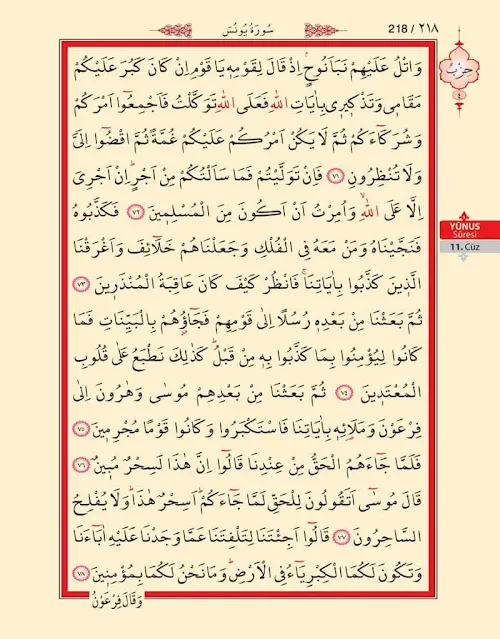 218 / ٢١٨
سُورَةُ يُونُسَ
حِزْبُ
٤
وَاتْلُ عَلَيْهِمْ نَبَاَ نُوحٍۢ اِذْ قَالَ لِقَوْمِه۪ يَا قَوْمِ اِنْ كَانَ كَبُرَ عَلَيْكُمْ
مَقَام۪ي وَتَذْك۪ير۪ي بِاٰيَاتِ اللّٰهِ فَعَلَى اللّٰهِ تَوَكَّلْتُ فَاَجْمِعُٓوا اَمْرَكُمْ
وَشُرَكَٓاءَكُمْ ثُمَّ لَا يَكُنْ اَمْرُكُمْ عَلَيْكُمْ غُمَّةً ثُمَّ اقْضُٓوا اِلَيَّ
وَلَا تُنْظِرُونِ ﴿٧١﴾ فَاِنْ تَوَلَّيْتُمْ فَمَا سَاَلْتُكُمْ مِنْ اَجْرٍۜ اِنْ اَجْرِيَ
اِلَّا عَلَى اللّٰهِۙ وَاُمِرْتُ اَنْ اَكُونَ مِنَ الْمُسْلِم۪ينَ ﴿٧٢﴾ فَكَذَّبُوهُ
فَنَجَّيْنَاهُ وَمَنْ مَعَهُ فِي الْفُلْكِ وَجَعَلْنَاهُمْ خَلَٓائِفَ وَاَغْرَقْنَا
الَّذ۪ينَ كَذَّبُوا بِاٰيَاتِنَاۚ فَانْظُرْ كَيْفَ كَانَ عَاقِبَةُ الْمُنْذَر۪ينَ ﴿٧٣﴾
ثُمَّ بَعَثْنَا مِنْ بَعْدِه۪ رُسُلًا اِلٰى قَوْمِهِمْ فَجَٓاؤُ۫هُمْ بِالْبَيِّنَاتِ فَمَا
كَانُوا لِيُؤْمِنُوا بِمَا كَذَّبُوا بِه۪ مِنْ قَبْلُۜ كَذٰلِكَ نَطْبَعُ عَلٰى قُلُوبِ
الْمُعْتَد۪ينَ ﴿٧٤﴾ ثُمَّ بَعَثْنَا مِنْ بَعْدِهِمْ مُوسٰى وَهٰرُونَ اِلٰى
فِرْعَوْنَ وَمَلَا۬ئِه۪ بِاٰيَاتِنَا فَاسْتَكْبَرُوا وَكَانُوا قَوْمًا مُجْرِم۪ينَ ﴿٧٥﴾
فَلَمَّا جَٓاءَهُمُ الْحَقُّ مِنْ عِنْدِنَا قَالُٓوا اِنَّ هٰذَا لَسِحْرٌ مُب۪ينٌ ﴿٧٦﴾
قَالَ مُوسٰٓى اَتَقُولُونَ لِلْحَقِّ لَمَّا جَٓاءَكُمْۜ اَسِحْرٌ هٰذَاۜ وَلَا يُفْلِحُ
السَّاحِرُونَ ﴿٧٧﴾ قَالُٓوا اَجِئْتَنَا لِتَلْفِتَنَا عَمَّا وَجَدْنَا عَلَيْهِ اٰبَٓاءَنَا
وَتَكُونَ لَكُمَا الْكِبْرِيَٓاءُ فِي الْاَرْضِۜ وَمَا نَحْنُ لَكُمَا بِمُؤْمِن۪ينَ ﴿٧٨﴾
وَقَالَ فِرْعَوْنُ
YÛNUS
Sûresi
11. Cüz